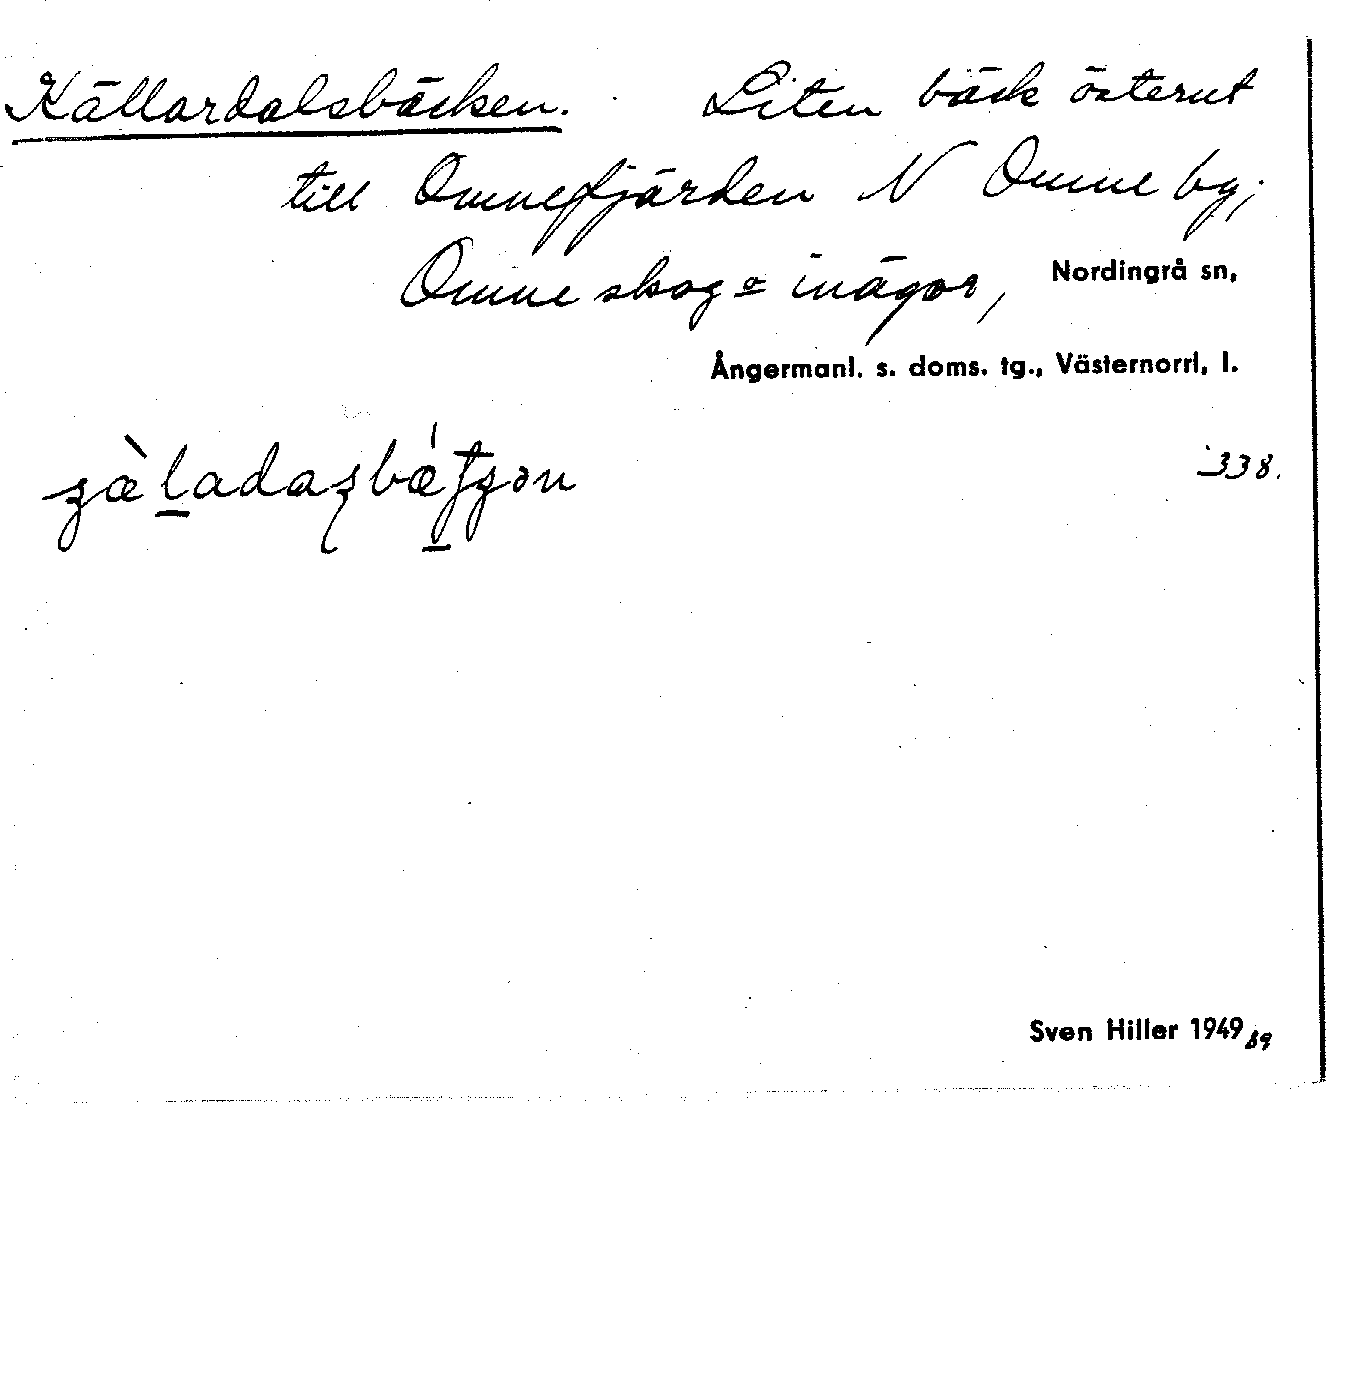 Källardalsbäcken. Liten bäck österut
till Omnefjärden N Omne by;
Omne skog o inägor, Nordingrå sn,
Ångermanl. s. doms. tg., Västernorrl. l.
338.
Sven Hiller 1949